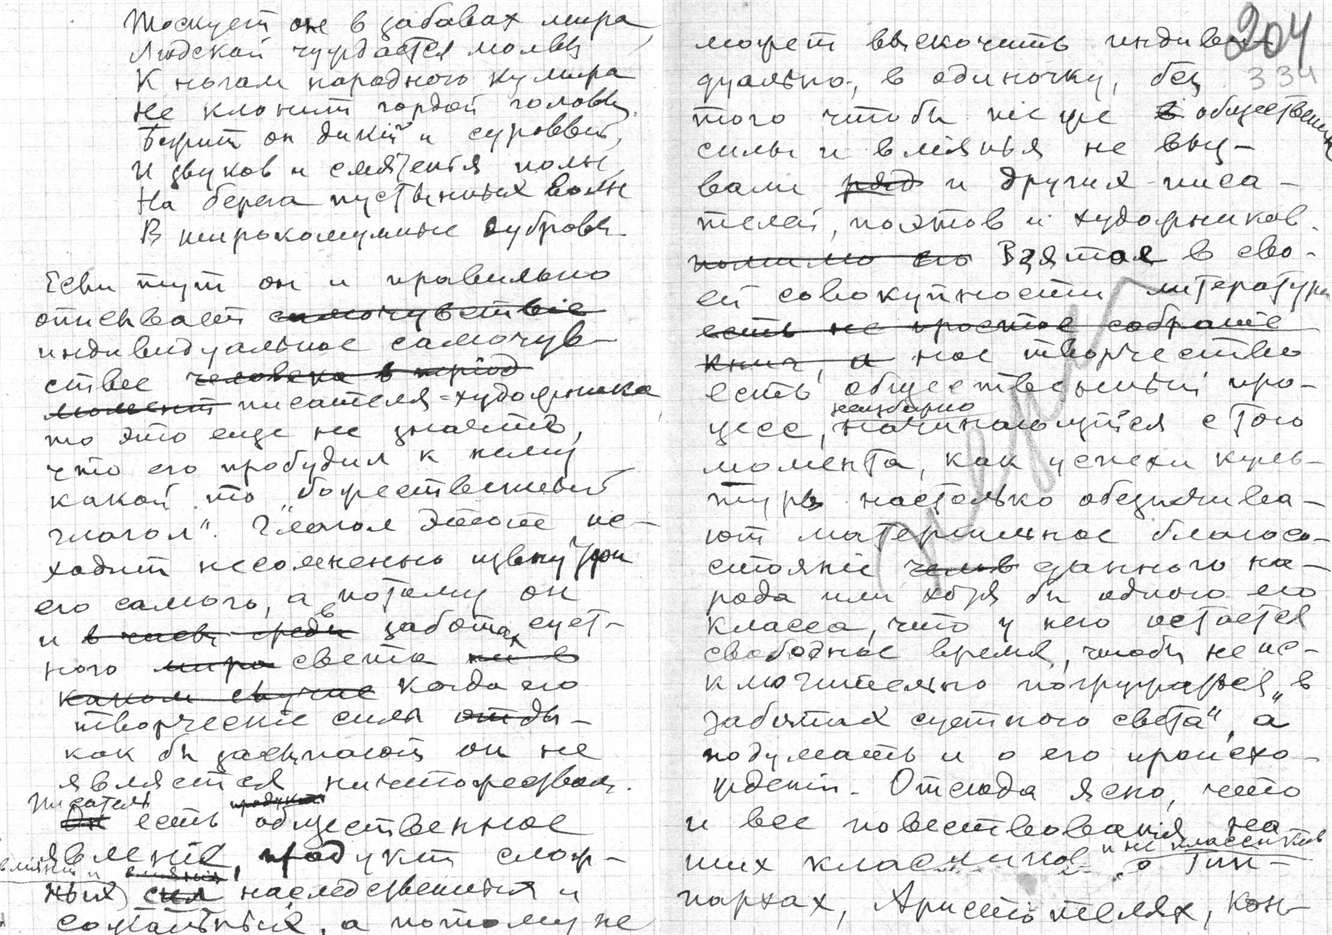 Тоскует он в забавах мира,
Людской чуждается молвы
К ногам народного кумира
Не клонит гордой головы.
Бежит он дикий и суровый,
И звуков и смятенья полн,
На берега пустынных волн
В широкошумные дубровы.
Если тут он и правильно
описывает самочувствіе
индивидуальное самочув-
ствіе человека в період
момент писателя-художника
то это еще не значитъ,
что его пробудил к нему
какой то „божественный
глагол“. Глагол этот не-
ходит несомненно извну три
его самого, а потому он
и в среде в заботах сует-
ного мира света ни в
каком случае когда его
творческіе силы отды-
как бы засыпают он не
является ничтожеством.
Писатель
Он есть продукт общественное
явленіе, продукт слож-
влияний и
ных сил наследственных и
соціальных, а потому не
204
334
может выскочить индиви-
дуально, в одиночку, без
того чтобы те же в общественныя
силы и вліянья не выз-
вали ряд и других писа-
телей, поэтов и художников.
помимо его Взятая в сво-
ей совокупности литература
есть не простое собраніе
книг, а нос творчество
есть общественный про-
неизбежно
цесс, начинающійся с того
момента, как успехи куль-
туры настолько обезпечива-
ют матеріальное благосо-
стояніе данного на-
рода или хотя бы одного его
класса, что у него остается
свободное время, чтобы не ис-
ключительно погружаться „в
заботах суетного света“, а
подумать и о его происхо-
жденіи. Отсюда ясно, что
и все повествованія на-
и не классиков
ших классиков о Гип-
пархах, Аристотелях, Кон-